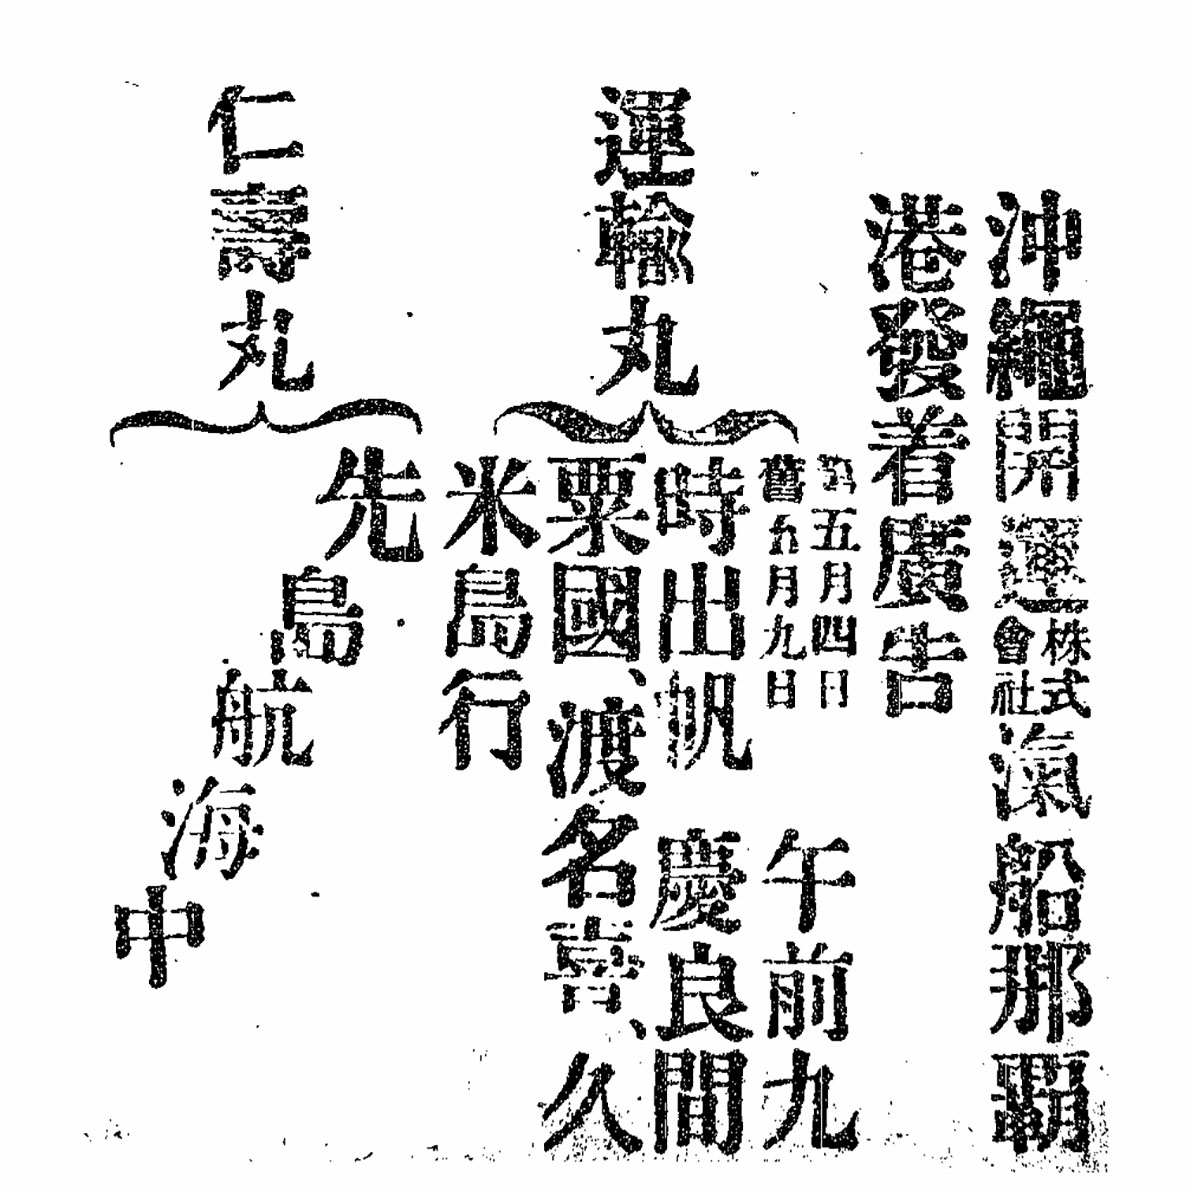 沖繩開運株式會社滊船那覇
港發着廣告
運輸丸
五月四日
舊五月九日
午前九
時出帆 慶良間
粟國、渡名喜、久
米島行
仁壽丸
先島航海中